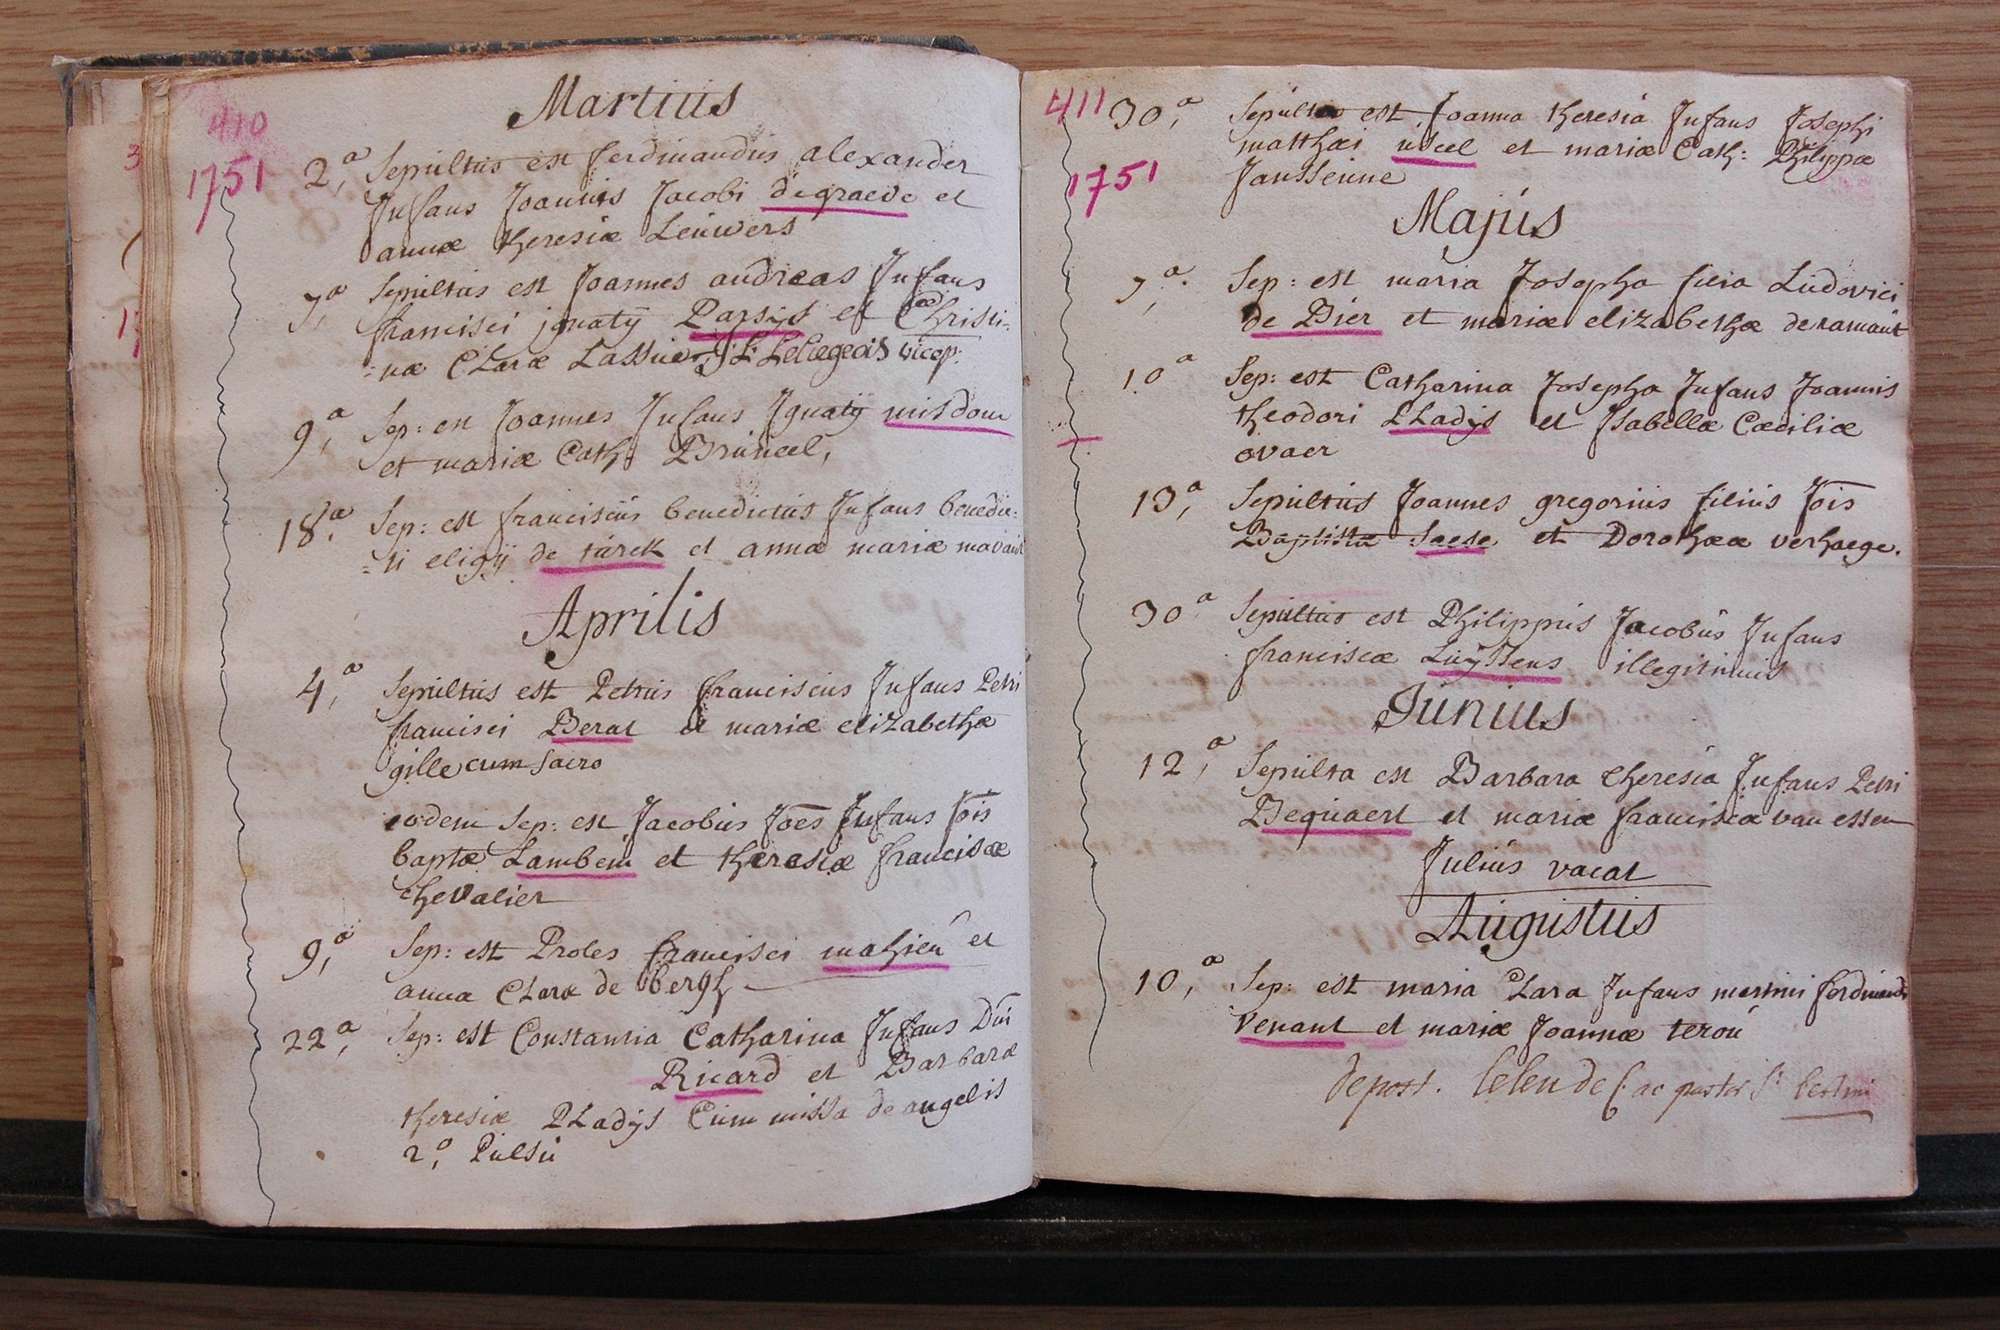 410
1751
Martius
2,a Sepultus est ferdinandus alexander
Infans Joannis Jacobi degraeve et
annæ theresiæ Leuwers
7,a Sepultus est Joannes andreas Infans
francisci ignatij Parsijs et Christi=
=næ Claræ Lassue J: L: Leliegeois vicep:
9,a Sep: est Joannes Infans Ignatij misdom
et mariæ Cath: Bruneel,
18,a Sep: est franciscus benedictus Infans benedic=
=ti eligij de turck et annæ mariæ
Aprilis
4,a Sepultus est Petrus franciscus Infans Petri
francisci Berat et mariæ elizabethæ
gille cum sacro
eodem Sep: est Jacobus Joes Infans Jois
baptæ Lambem et theresiæ franciscæ
chevalier
9,a Sep: est Proles francisci mahieu et
anna Claræ de bergh
22,a Sep: est Constantia Catharina Infans Dni
Ricard et Barbaræ
theresiæ PLadijs Cum missa de angelis
2,o Pulsu
411
1751
30,a Sepulta est Joanna theresia Infans Josephi
matthæi et mariæ Cath: Philippæ
Janssenne
Majus
7,a Sep: est maria Josepha filia Ludovici
de Bier et mariæ elizabethæ deramaut
10a Sep: est Catharina Josepha Infans Joannis
theodori PLadijs et Isabellæ Cæciliæ
ovaer
13,a Sepultus Joannes gregorius filius Jois
Baptista Saese et Dorothææ verhaege.
30a Sepultus est Philippus Jacobus Infans
franciscæ Luijssens illegitimus
Junius
12,a Sepulta est Barbara theresia Infans Petri
Bequaert et mariæ franciscæ van essen
Julius vacat
Augustus
10,a Sep: est maria Clara Infans martini ferdinandi
Venant et mariæ Joannæ terou
depost. ac pastor Sti bertini